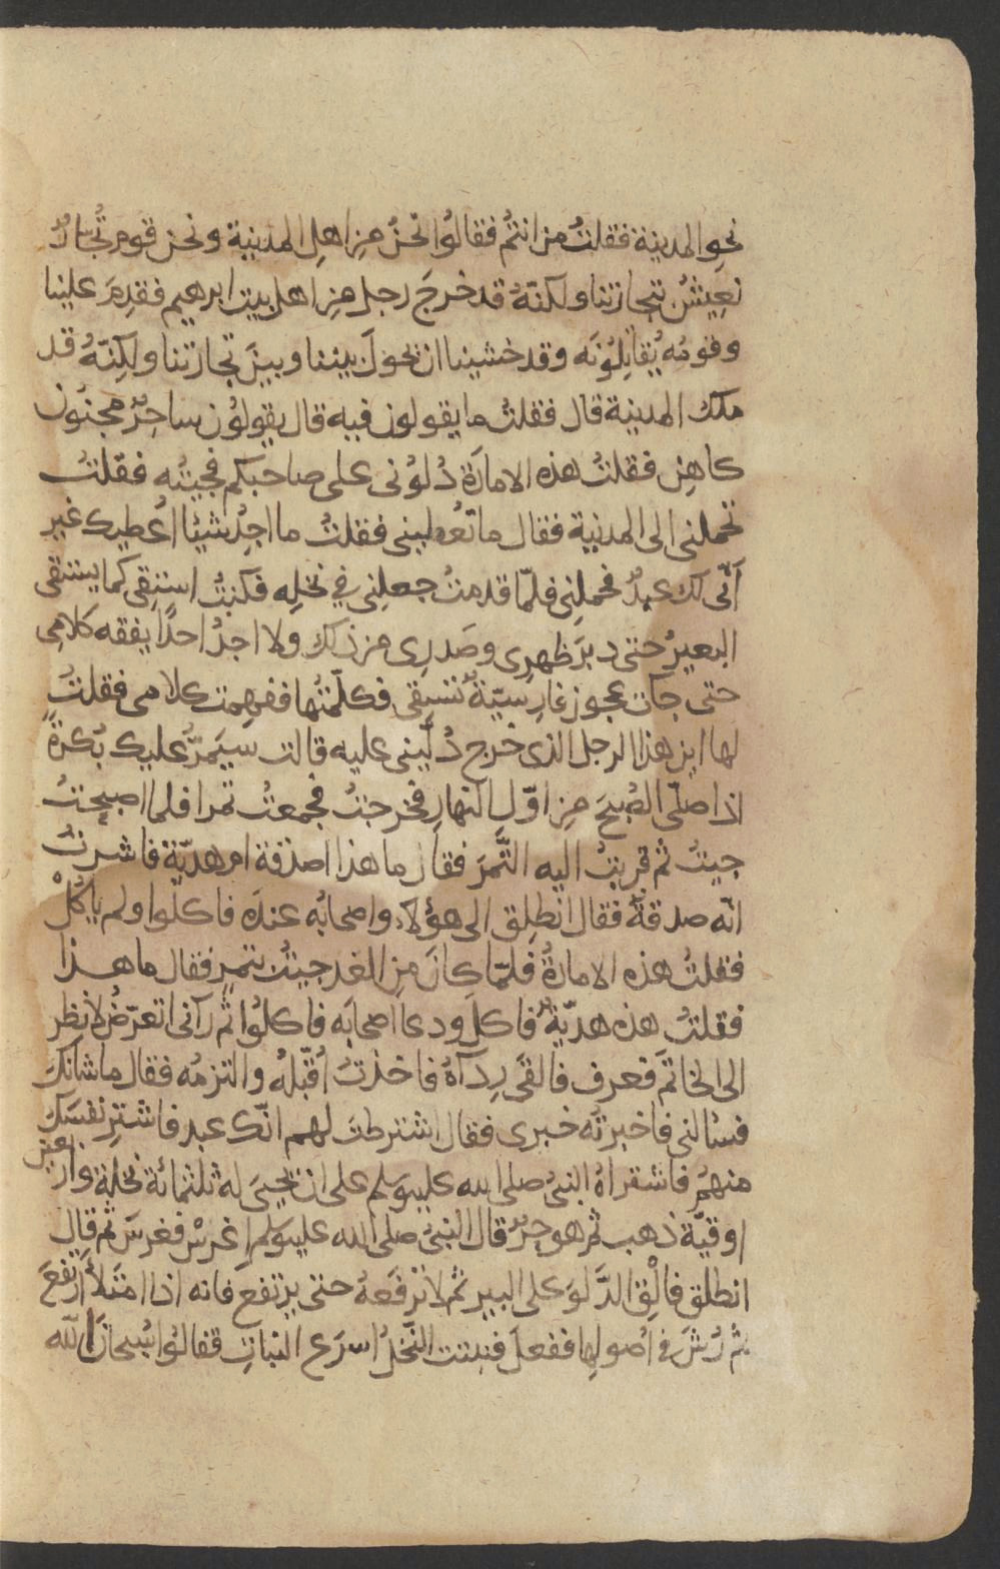 نحو المدينة فقلتُ من انتُم فقالُوا نحنُ مِن اهلِ المدينة ونحن قوم تُجارٌ
نَعِيشُ بتجارتنا ولكنّهُ قد خرجَ رجل مِن اهل بيت ابرهيم فقدِمَ علينا
وقومُه يُقاتِلُونَه وقد خشينا ان تحولَ بيننا وبينَ تجارتنا ولكِنّهُ قد
ملك المدينة قال فقلتُ ما يقولون فيه قال يقولوُن ساحِرٌ مجنُون
كاهِن فقلتُ هذه الامارَة دُلوُنى على صاحبكم فجيتُه فقلتُ
تحملنى الى المدنية فقال ما تعُطينى فقلتُ ما اجِدُ شيئا اُعطيك غير
اَنّى لك عبدٌ فحملنِى فلمّا قدمتُ جعلنِى في نخلِه فكنتُ استقِى كما يستقى
البعيرُ حتى دبرَ ظهرِى وصَدرِى من ذلك ولا اجدُ احدًا يفقه كلامِى
حتى جآت عجوز فارِسيّةٌ تستقِى فكلّمتُها ففهِمت كلامى فقلتُ
لها اين هذا الرجل الذى خرج دُلّينى عليه قالت سَيَمرُّ عليك بُكرةً
اذا صلّى الصُبحَ مِن اوّلِ النهارِ فخرجتُ فجمعتُ تمرا فلما اصبحتُ
جيتُ ثم قربتُ اليه التَّمرَ فقال ما هذا اصدقة ام هديّة فاشرتُ
انّه صدقةٌ فقال انطلِق الى هؤلاء واصحابُه عندَه فاكلُوا ولم ياكُلْ
فقلتُ هذه الامارةُ فلمّا كانَ مِن الغد جيتُ بتمرٍ فقال ما هذا
فقلتُ هذه هديّةٌ فاكلَ ودعا اصحابَه فاكلُوا ثم رآنى اتعرّضُ لانظر
الى الخاتَم فعرف فالقَى رِدآهُ فاخذتُ اُقبّلُه والتزمُه فقال ما شانُك
فسئالنى فاخبرتُه خبرى فقال اشترطتَ لهم انّك عبد فاشترِ نفسَك
منهمُ فاشتراهُ النبىُ صلى الله عليه وسلم على ان تحيىَ له ثلثمائة نخلة واربعين
اوقيّة ذهب ثم هو حرٌ قال النبىُ صلى الله عليه وسلم اغرسْ فغرسَ ثم قال
انطلق فالْقِ الدَّلوَ على البير ثم لا ترفَعهُ حتى يرتفع فانه اذا امتلأَ ارتفعَ
ثم رُشَ فى اصُولِها ففعلَ فنبتت النّخلُ اسرَع النباتِ فقالوُا سُبحانَ الله